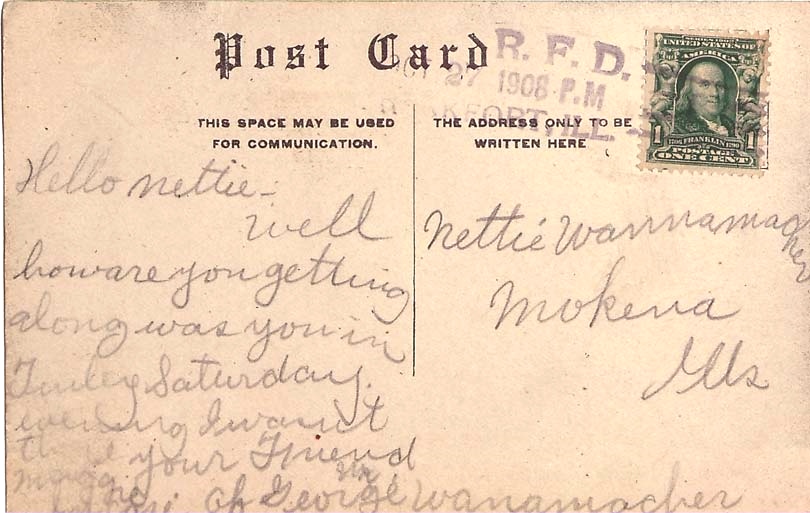 Post Card
R. F. D.
27 1908 P.M
KFORT, ILL.
SERIES 1902
UNITED STATES OF
AMERICA
1 1
1706 FRANKLIN 1790
POSTAGE
ONE CENT
THIS SPACE MAY BE USED
FOR COMMUNICATION.
THE ADDRESS ONLY TO BE
WRITTEN HERE
Hello nettie-
well
how are you getting
along was you in
Tinley Saturday
evening I wasn't
there your Friend
George wanamacher
Nettie Wannamacher
Mokena
Ills